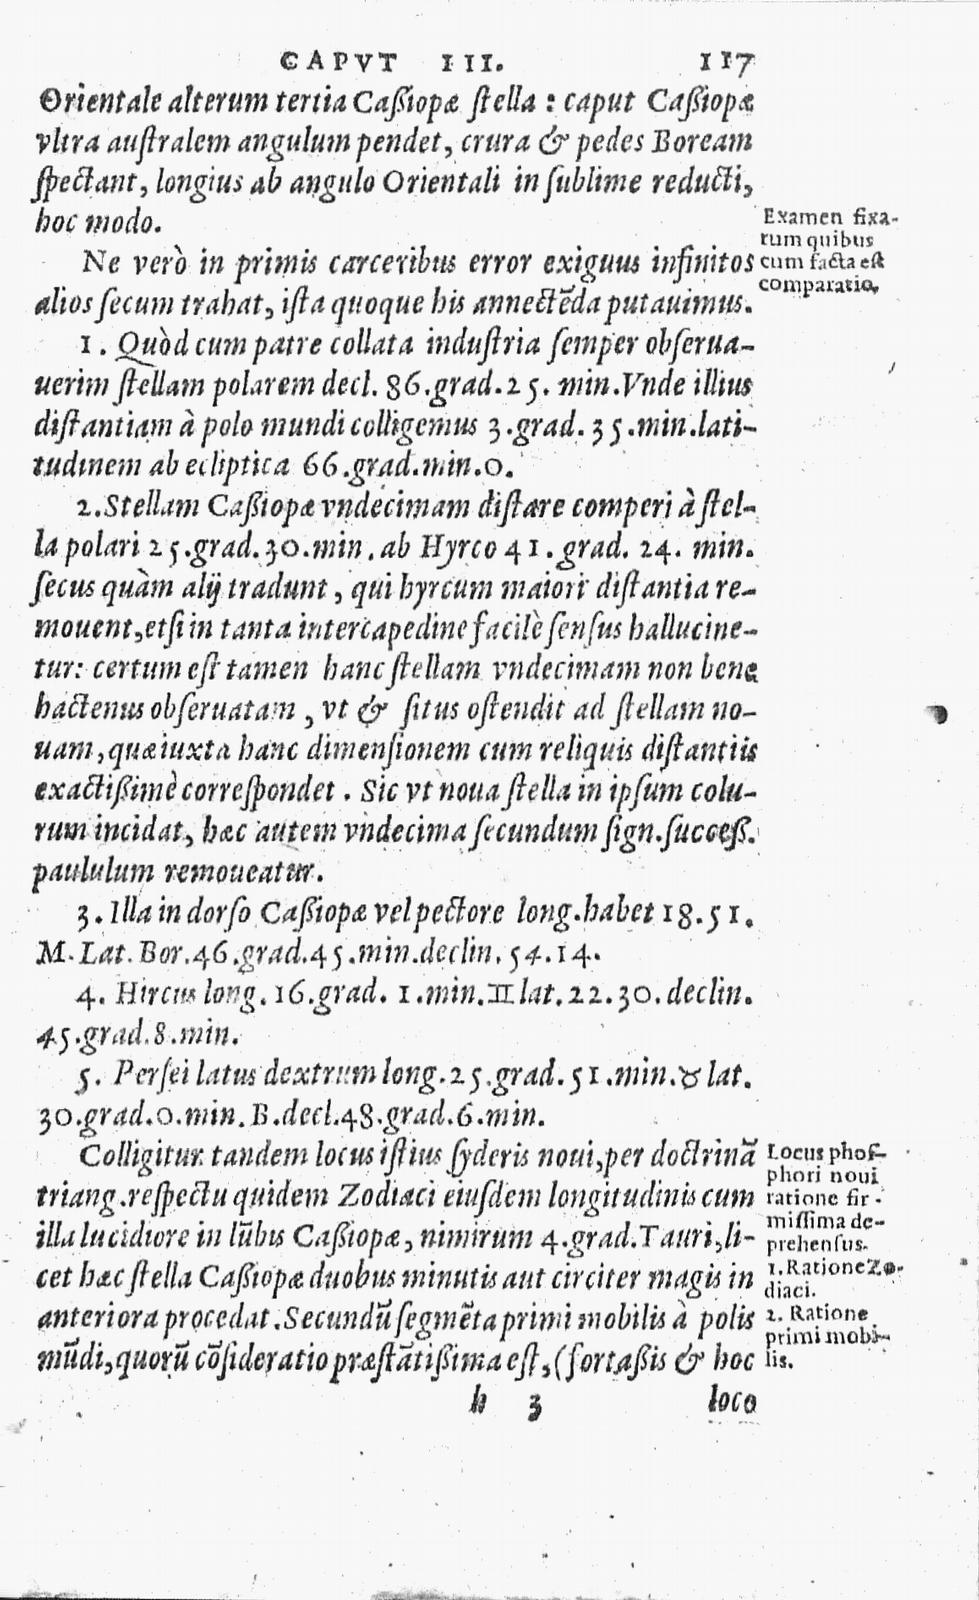 CAPVT III. 117
Orientale alterum tertia Caßiopæ ſtella : caput Caßiopæ
vltra auſtralem angulum pendet, crura & pedes Boream
ſpectant, longius ab angulo Orientali in ſublime reducti,
hoc modo.
Examen fixa-
rum quibus
cum facta eſt
comparatio.
Ne verò in primis carceribus error exiguus infinitos
alios ſecum trahat, iſta quoque his annectēda putauimus.
1. Quòd cum patre collata induſtria ſemper obſerua-
uerim ſtellam polarem decl. 86.grad.25. min.Vnde illius
diſtantiam à polo mundi colligemus 3.grad.35.min.lati-
tudinem ab ecliptica 66.grad.min.0.
2.Stellam Caßiopæ vndecimam diſtare comperi à ſtel-
la polari 25.grad.30.min.ab Hyrco 41.grad. 24. min.
ſecus quàm alij tradunt, qui hyrcum maiori diſtantia re-
mouent,etſi in tanta intercapedine facilè ſenſus hallucine-
tur: certum eſt tamen hanc ſtellam vndecimam non bene
hactenus obſeruatam, vt & ſitus oſtendit ad ſtellam no-
uam,quæ iuxta hanc dimenſionem cum reliquis diſtantiis
exactißimè correſpondet. Sic vt noua ſtella in ipſum colu-
rum incidat, hæc autem vndecima ſecundum ſign.ſucceß.
paululum remoueatur.
3. Illa in dorſo Caßiopæ vel pectore long.habet 18.51.
M.Lat.Bor.46.grad.45.min.declin.54.14.
4. Hircus long.16.grad. 1.min.♊lat.22.30.declin.
45.grad.8.min.
5. Perſei latus dextrum long.25.grad.51.min.♉lat.
30.grad.0.min.B.decl.48.grad.6.min.
Colligitur tandem locus iſtius ſyderis noui,per doctrinā
triang.reſpectu quidem Zodiaci eiuſdem longitudinis cum
illa lucidiore in lūbis Caßiopæ, nimirum 4.grad.Tauri,li-
cet hæc ſtella Caßiopæ duobus minutis aut circiter magis in
anteriora procedat.Secundū ſegmēta primi mobilis à polis
mūdi,quorū cōſideratio præſtātißima eſt,(fortaßis & hoc
Locus phoſ-
phori noui
ratione fir-
miſſima de-
prehenſus.
1.Ratione Zo-
diaci.
2. Ratione
primi mobi-
lis.
h 3 loco